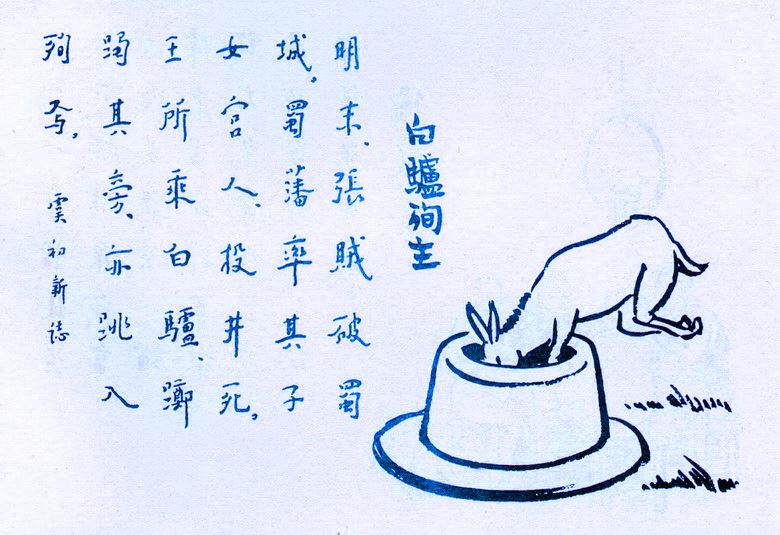 白驢殉主
明末、張賊破蜀
城，蜀藩率其子
女宮人、投井死，
王所乘白驢、躑
躅其旁、亦跳入
殉焉，
虞初新誌